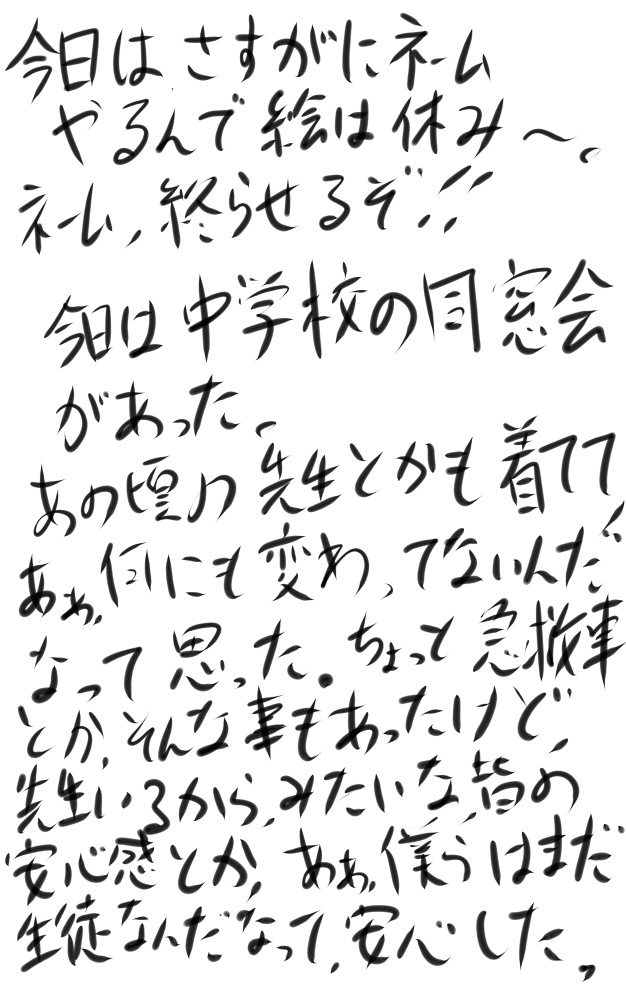 今日はさすがにネーム
やるんで絵は休み〜。
ネーム、終らせるぞ!!
今日は中学校の同窓会
があった。
あの頃の先生とかも着てて
あぁ、何にも変わってないんだ!
なって思った。ちょっと急救車
とか、そんな事もあったけど、
先生いるから、みたいな皆の
安心感とか、あぁ、僕らはまだ
生徒なんだなって、安心した。